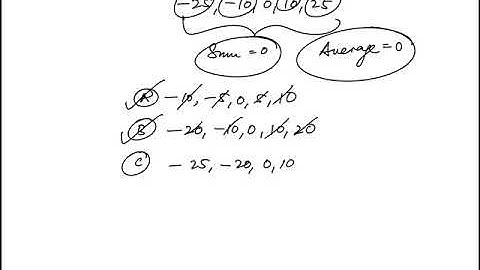 -25, -10, 0, 10, 25
Sum = 0
Average = 0
A -10, -5, 0, 5, 10
B -20, -10, 0, 10, 20
C -25, -20, 0, 10